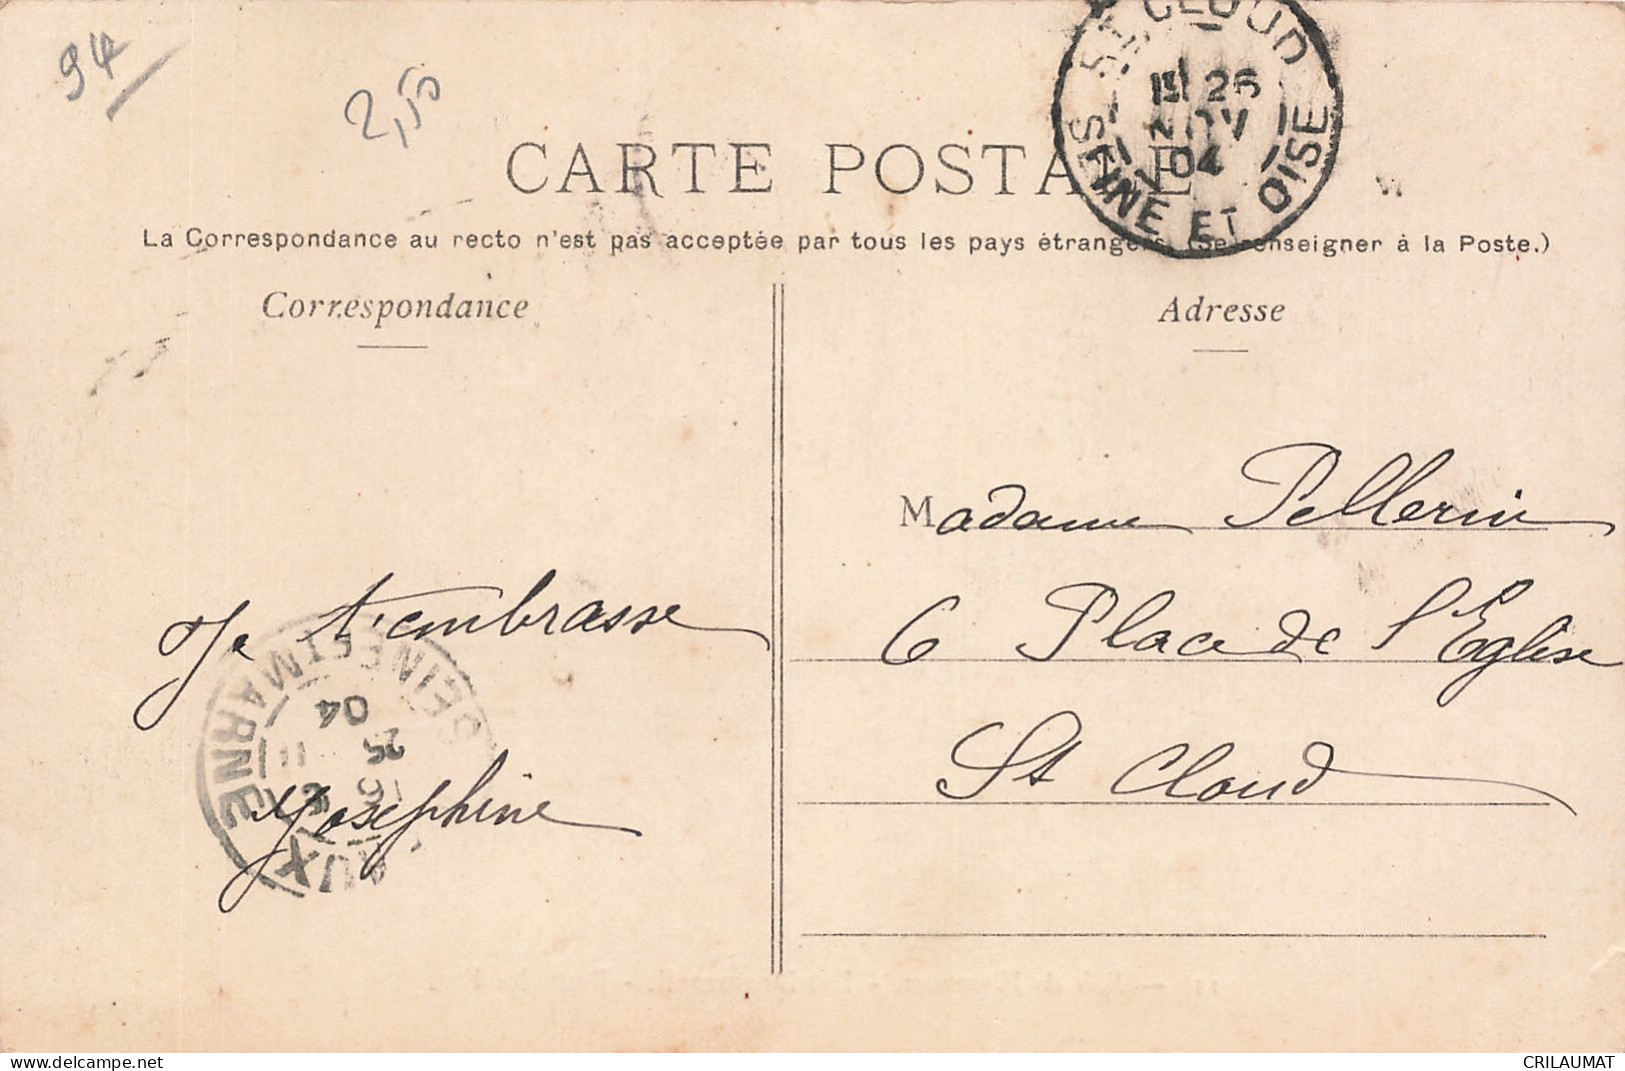 94
2,50
ST CLOUD
26
04
SEINE ET OISE
CARTE POSTALE
La Correspondance au recto n'est pas acceptée par tous les pays étrangers (Se renseigner à la Poste.)
Correspondance
Adresse
Madame Pellerin
Je t'embrasse
6 Place de l'Eglise
St Cloud
Josephine
SEINE ET MARNE
25
04
delcampe.net
CRILAUMAT